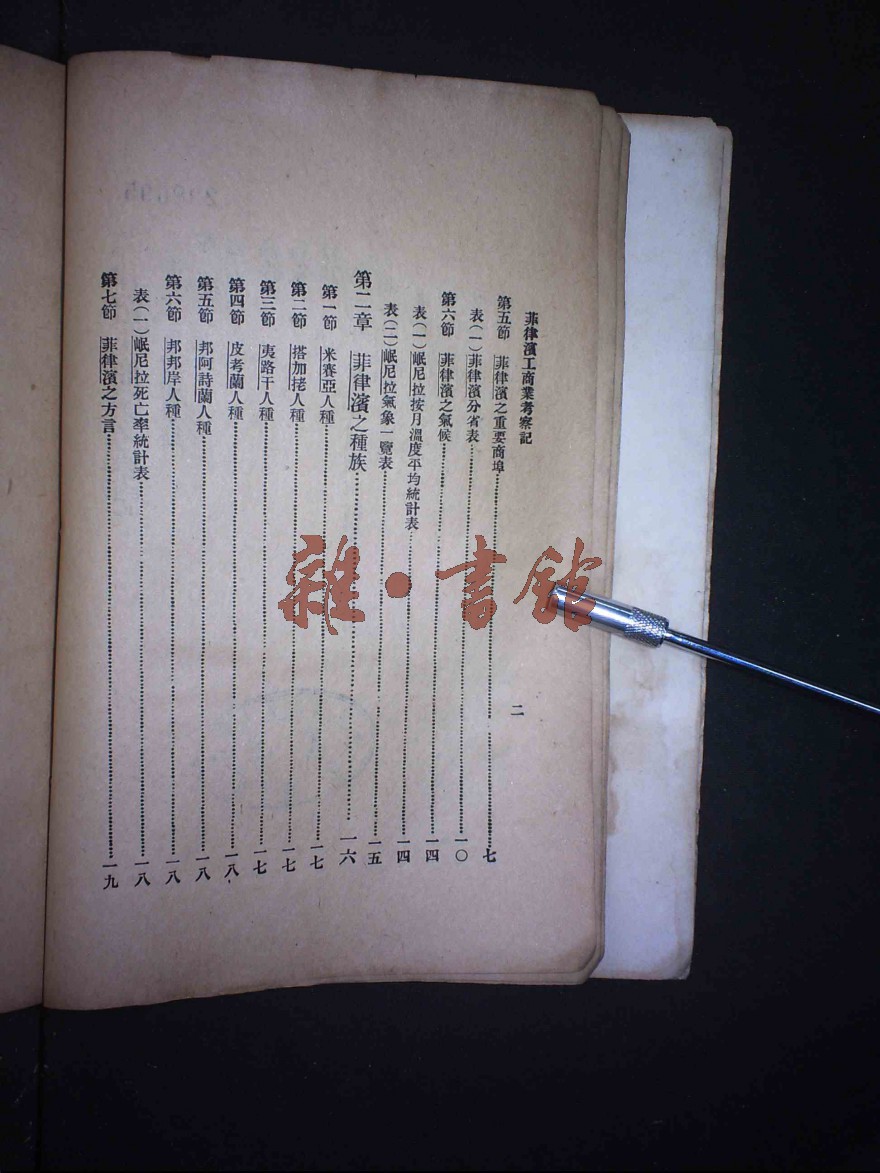 菲律濱工商業考察記
二
第五節 菲律濱之重要商埠 七
表(一)菲律濱分省表 一〇
第六節 菲律濱之氣候 一四
表(一)岷尼拉按月溫度平均統計表 一四
表(二)岷尼拉氣象一覽表 一五
第二章 菲律濱之種族 一六
第一節 米賽亞人種 一七
第二節 搭加㧯人種 一七
第三節 夷路干人種 一七
第四節 皮考蘭人種 一八
第五節 邦阿詩蘭人種 一八
第六節 邦邦岸人種 一八
表(一)岷尼拉死亡率統計表 一八
第七節 菲律濱之方言 一九
雜·書館